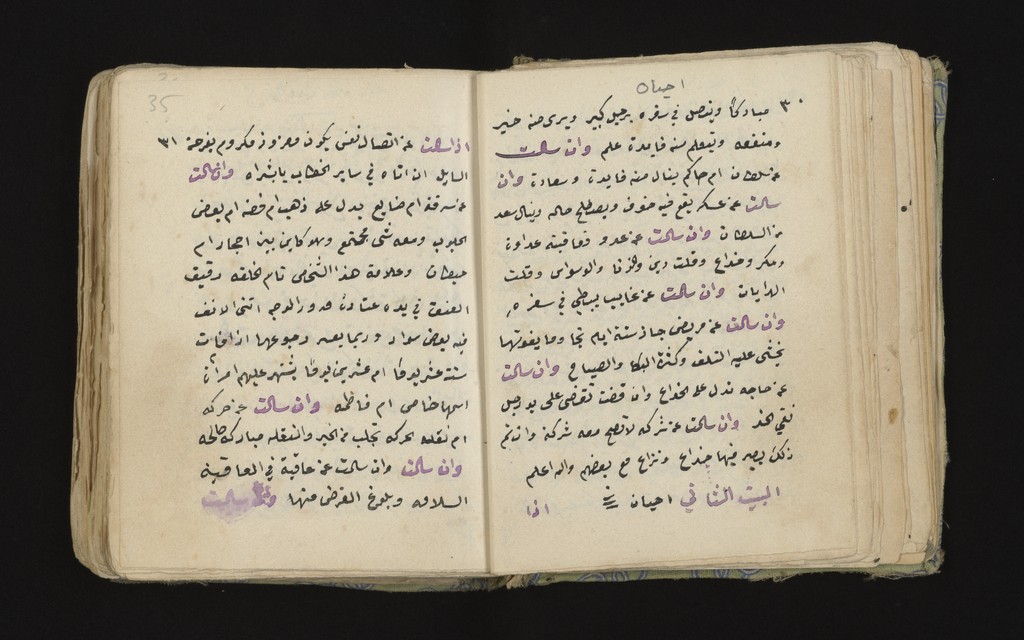 احيان
٣٠ مباركاً ويتصل في سفره برجل كبير ويرى منه خير
ومنفعه ويتعلم منه فايدة علم وان سالت
عن سلطان ام حاكم ينال منه فايدة وسعادة وان
سالت عن عسكر يقع فيه خوف ويصطلح حاله وينال سعد
من السلطان وان سالت عن عدو فعاقبته عداوة
ومكر وخداع وقلت دين والوسواس وقلت
الدايات وان سالت عن غايب يبطي في سفره
وان سالت عن مريض جاز ستة ايام نجا وما يفوتها
يخشى عليه التلف وكثرة البكا والصياح وان سالت
عن حاجه تدل على الخداع وان قضت تقضى على يد رجل
نقي الخد وان سالت عن شركه لا تصح معه شركة وان تم
ذلك يصير فيها خداع ونزاع مع بعضهم والله اعلم
البيت الثاني احيان اذا
35
٣١ اذا سالت عن اتصال نفس يكون ومكروم بفرحة
السايل ان اتاه في ساير الخطاب يا بشراه وان سالت
عن سرقه ام ضايع يدل على ذهب ام فضه ام بعض
الحبوب ومعه شي مجتمع وهو كاين بين احجار ام
حيطان وعلامة هذا الشخص تام الخلقه رقيق
العنق في يده مدور الوجه اقنى الانف
فيه بعض سواد وربما يعسر رجوعها اذا فات
ستة عشر يوماً ام عشرين يوماً يشتهر عليهم امرأة
اسمها خاص ام فاطمه وان سالت عن حركه
ام نقله حركه تجلب من الخير والنقله مباركه صالحه
وان سالت وان سالت عن عاقبة في العاقبة
السلامه وبلوغ الغرض منها وان سالت